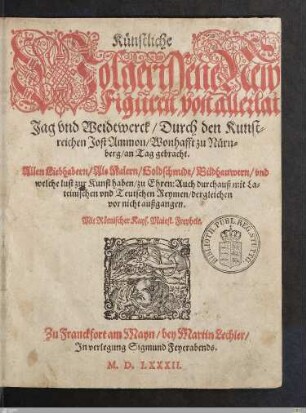 Künstliche
Wolgerissene New
Figuren von allerlai
Jag vnd Weidtwerck / Durch den Kunst-
reichen Jost Ammon / Wonhafft zu Nürn-
berg / an Tag gebracht.
Allen Liebhabern / Als Malern / Goldschmidt / Bildhauwern / vnd
welche lust zur Kunst haben / zu Ehren: Auch durchauß mit La-
teinischen vnd Teutschen Reymen / dergleichen
vor nicht außgangen.
Mit Römischer Kays. Maiest. Freyheit.
BIBLIOTH. PUBL. REG. STUTTG.
Zu Franckfort am Mayn / bey Martin Lechler /
In verlegung Sigmund Feyerabends.
M. D. LXXXII.